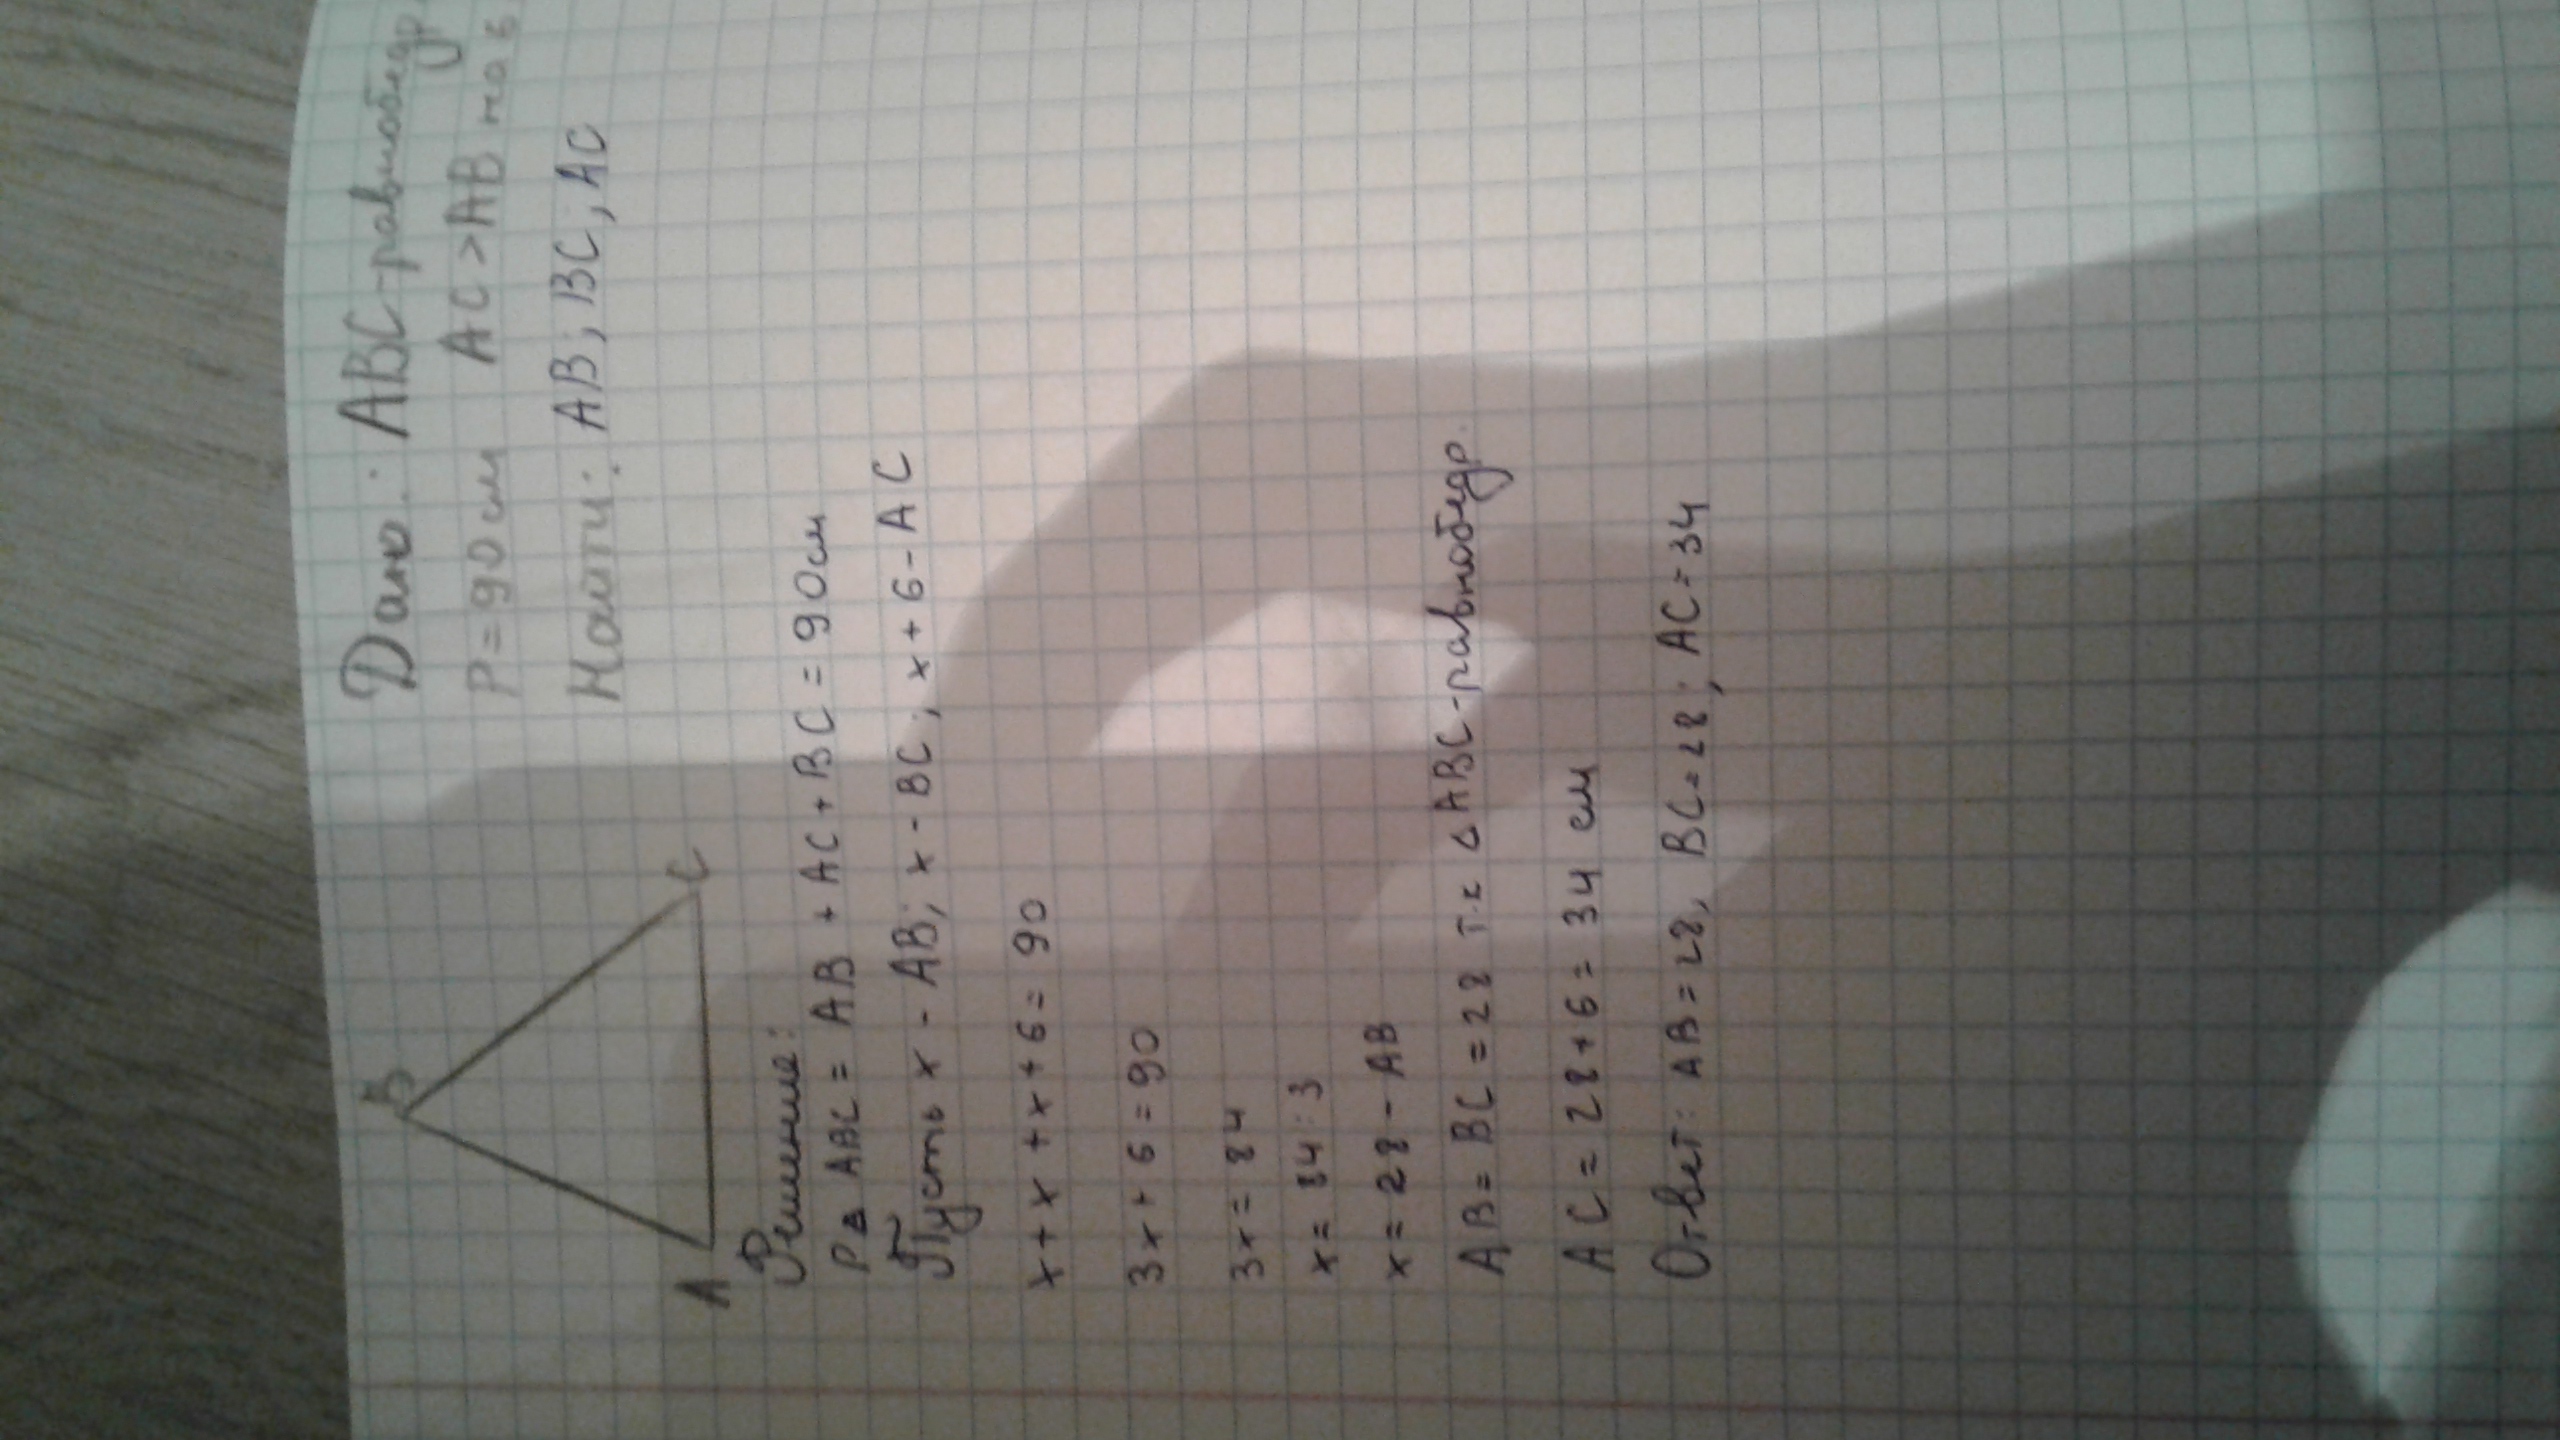 B
A
C
Дано: ABC-равнобедр.
P=90см AC>AB на 6
Найти: AB; BC; AC
Решение:
P△ABC = AB + AC + BC = 90см
Пусть x - AB; x - BC; x+6 - AC
x+x+x+6=90
3x+6=90
3x=84
x=84:3
x=28 - AB
AB=BC=28 т.к △ABC-равнобедр.
AC=28+6=34 см
Ответ: AB=28, BC=28; AC=34